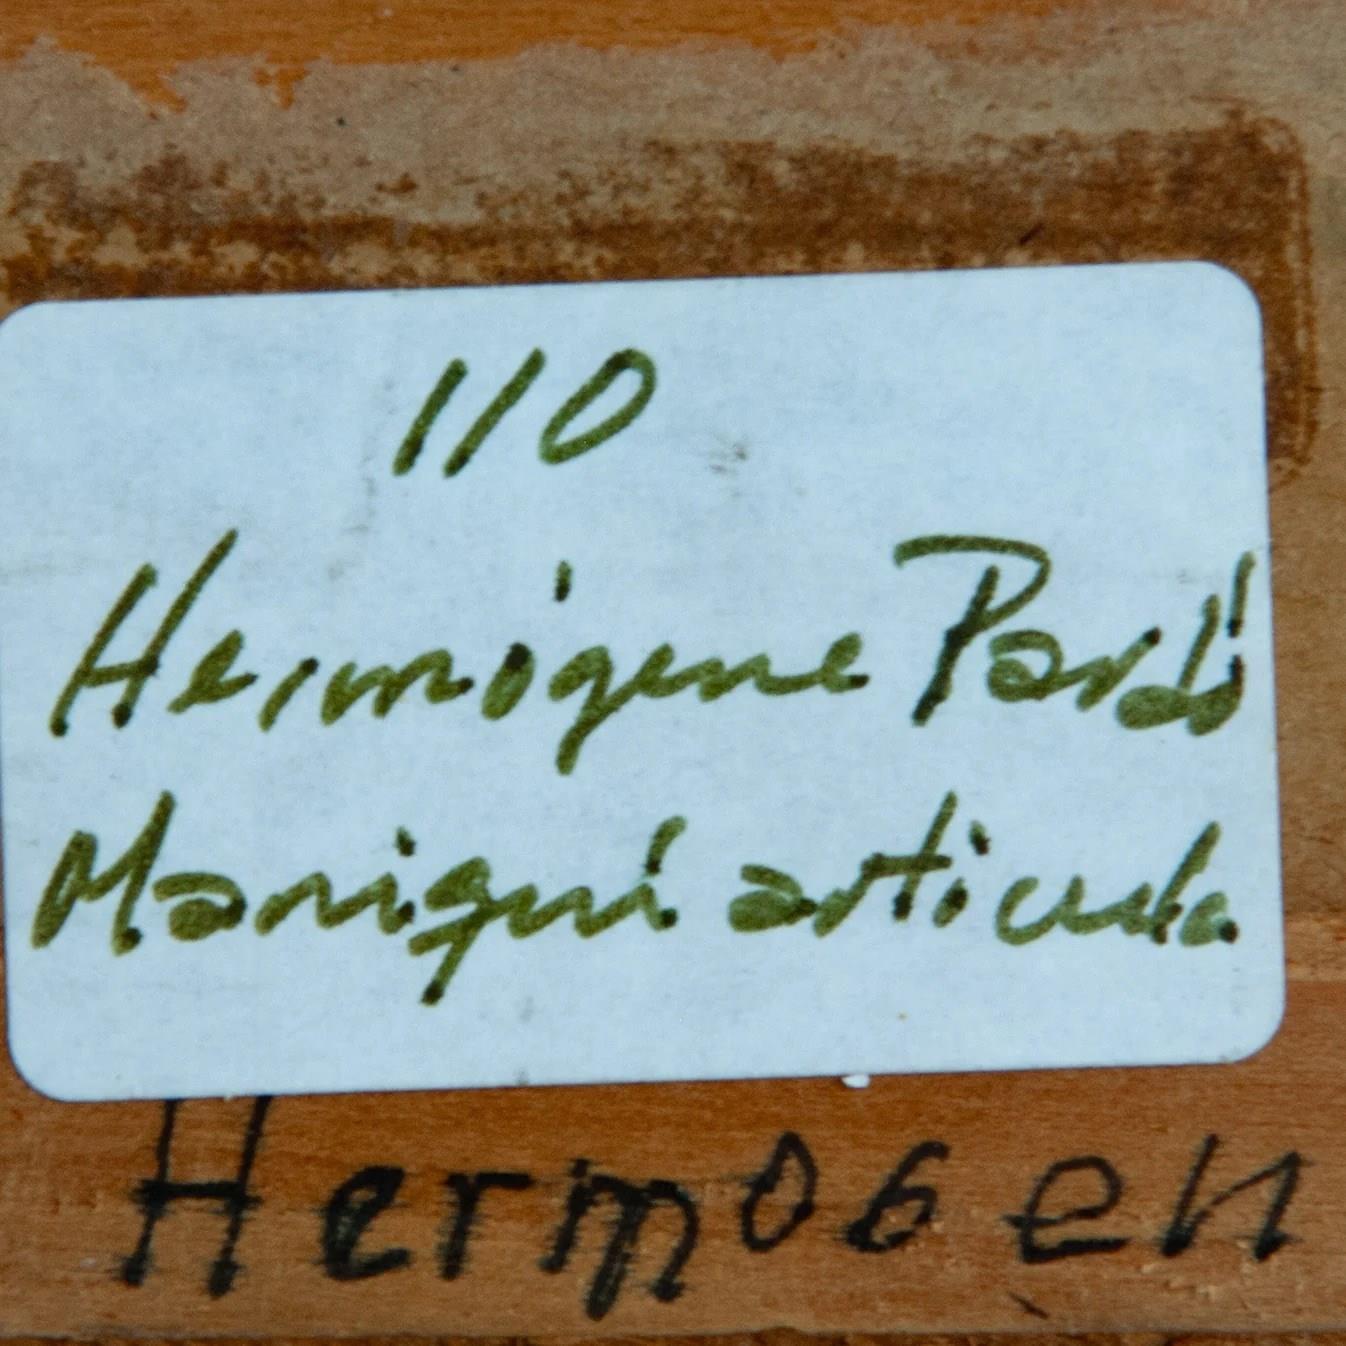 110
Hermogene Pardi
Maniquí articula
Hermogen